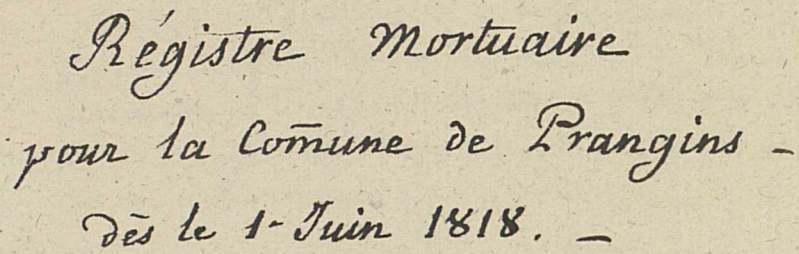 Régistre Mortuaire
pour la Com̄une de Prangins -
dès le 1- Juin 1818. -